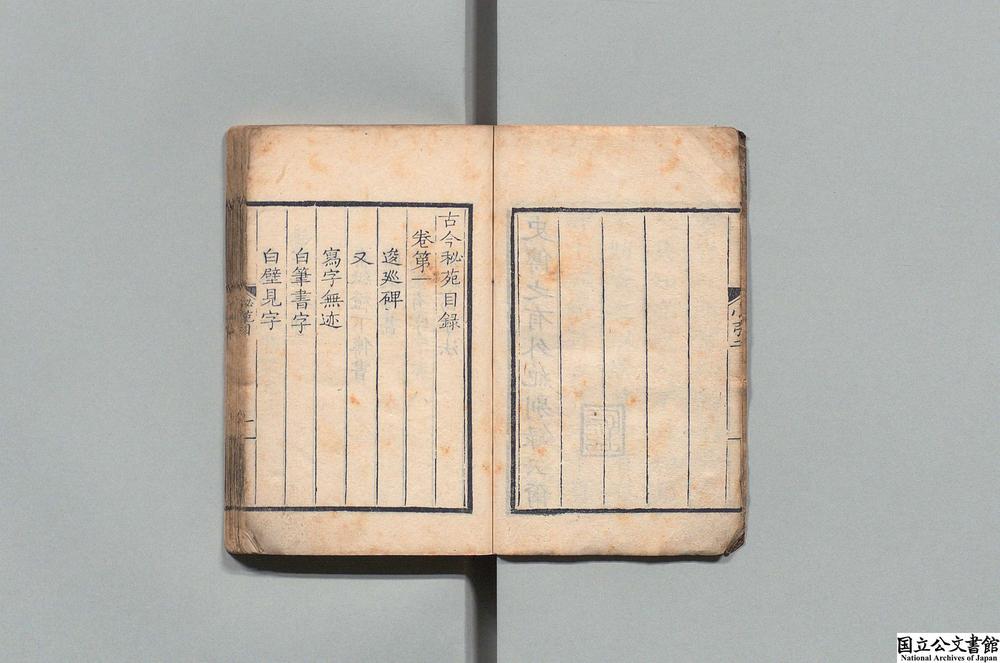 古今秘苑目録
卷第一
逡廵碑
又
寫字無迹
白筆書字
白壁見字
小引二
国立公文書館
National Archives of Japan